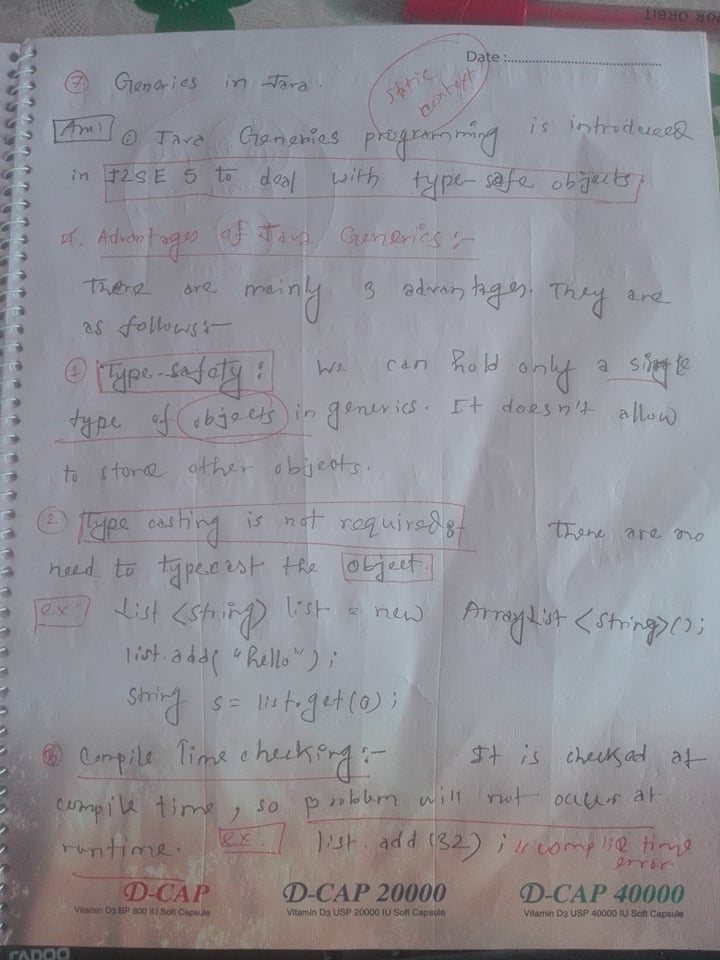 Date :
static
context
7 Generics in Java.
Ans: ① Java Generics programming is introduced
in J2SE 5 to deal with type-safe objects.
Advantages of Java Generics:-
There are mainly 3 advantages. They are
as follows:-
① Type-safety: We can hold only a single
type of objects in generics. It doesn't allow
to store other objects.
② Type casting is not required: There are no
need to typecast the object.
ex: List <String> list = new ArrayList <String>();
list.add( "hello" );
String s = list.get(0);
③ Compile Time checking:- It is checked at
compile time, so problem will not occur at
runtime. ex: list.add(32); // complie time
error.
D-CAP D-CAP 20000 D-CAP 40000
Vitamin D3 BP 800 IU Soft Capsule Vitamin D3 USP 20000 IU Soft Capsule Vitamin D3 USP 40000 IU Soft Capsule